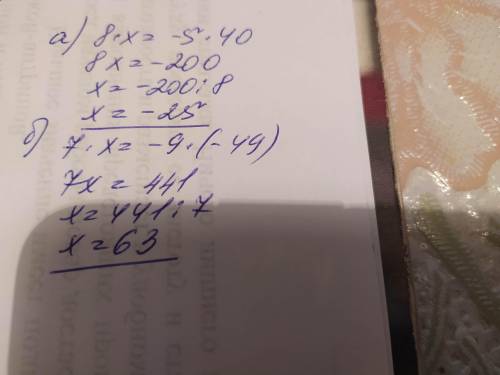 а) 8·x = -5·40
8x = -200
x = -200:8
x = -25
б) 7·x = -9·(-49)
7x = 441
x = 441:7
x = 63